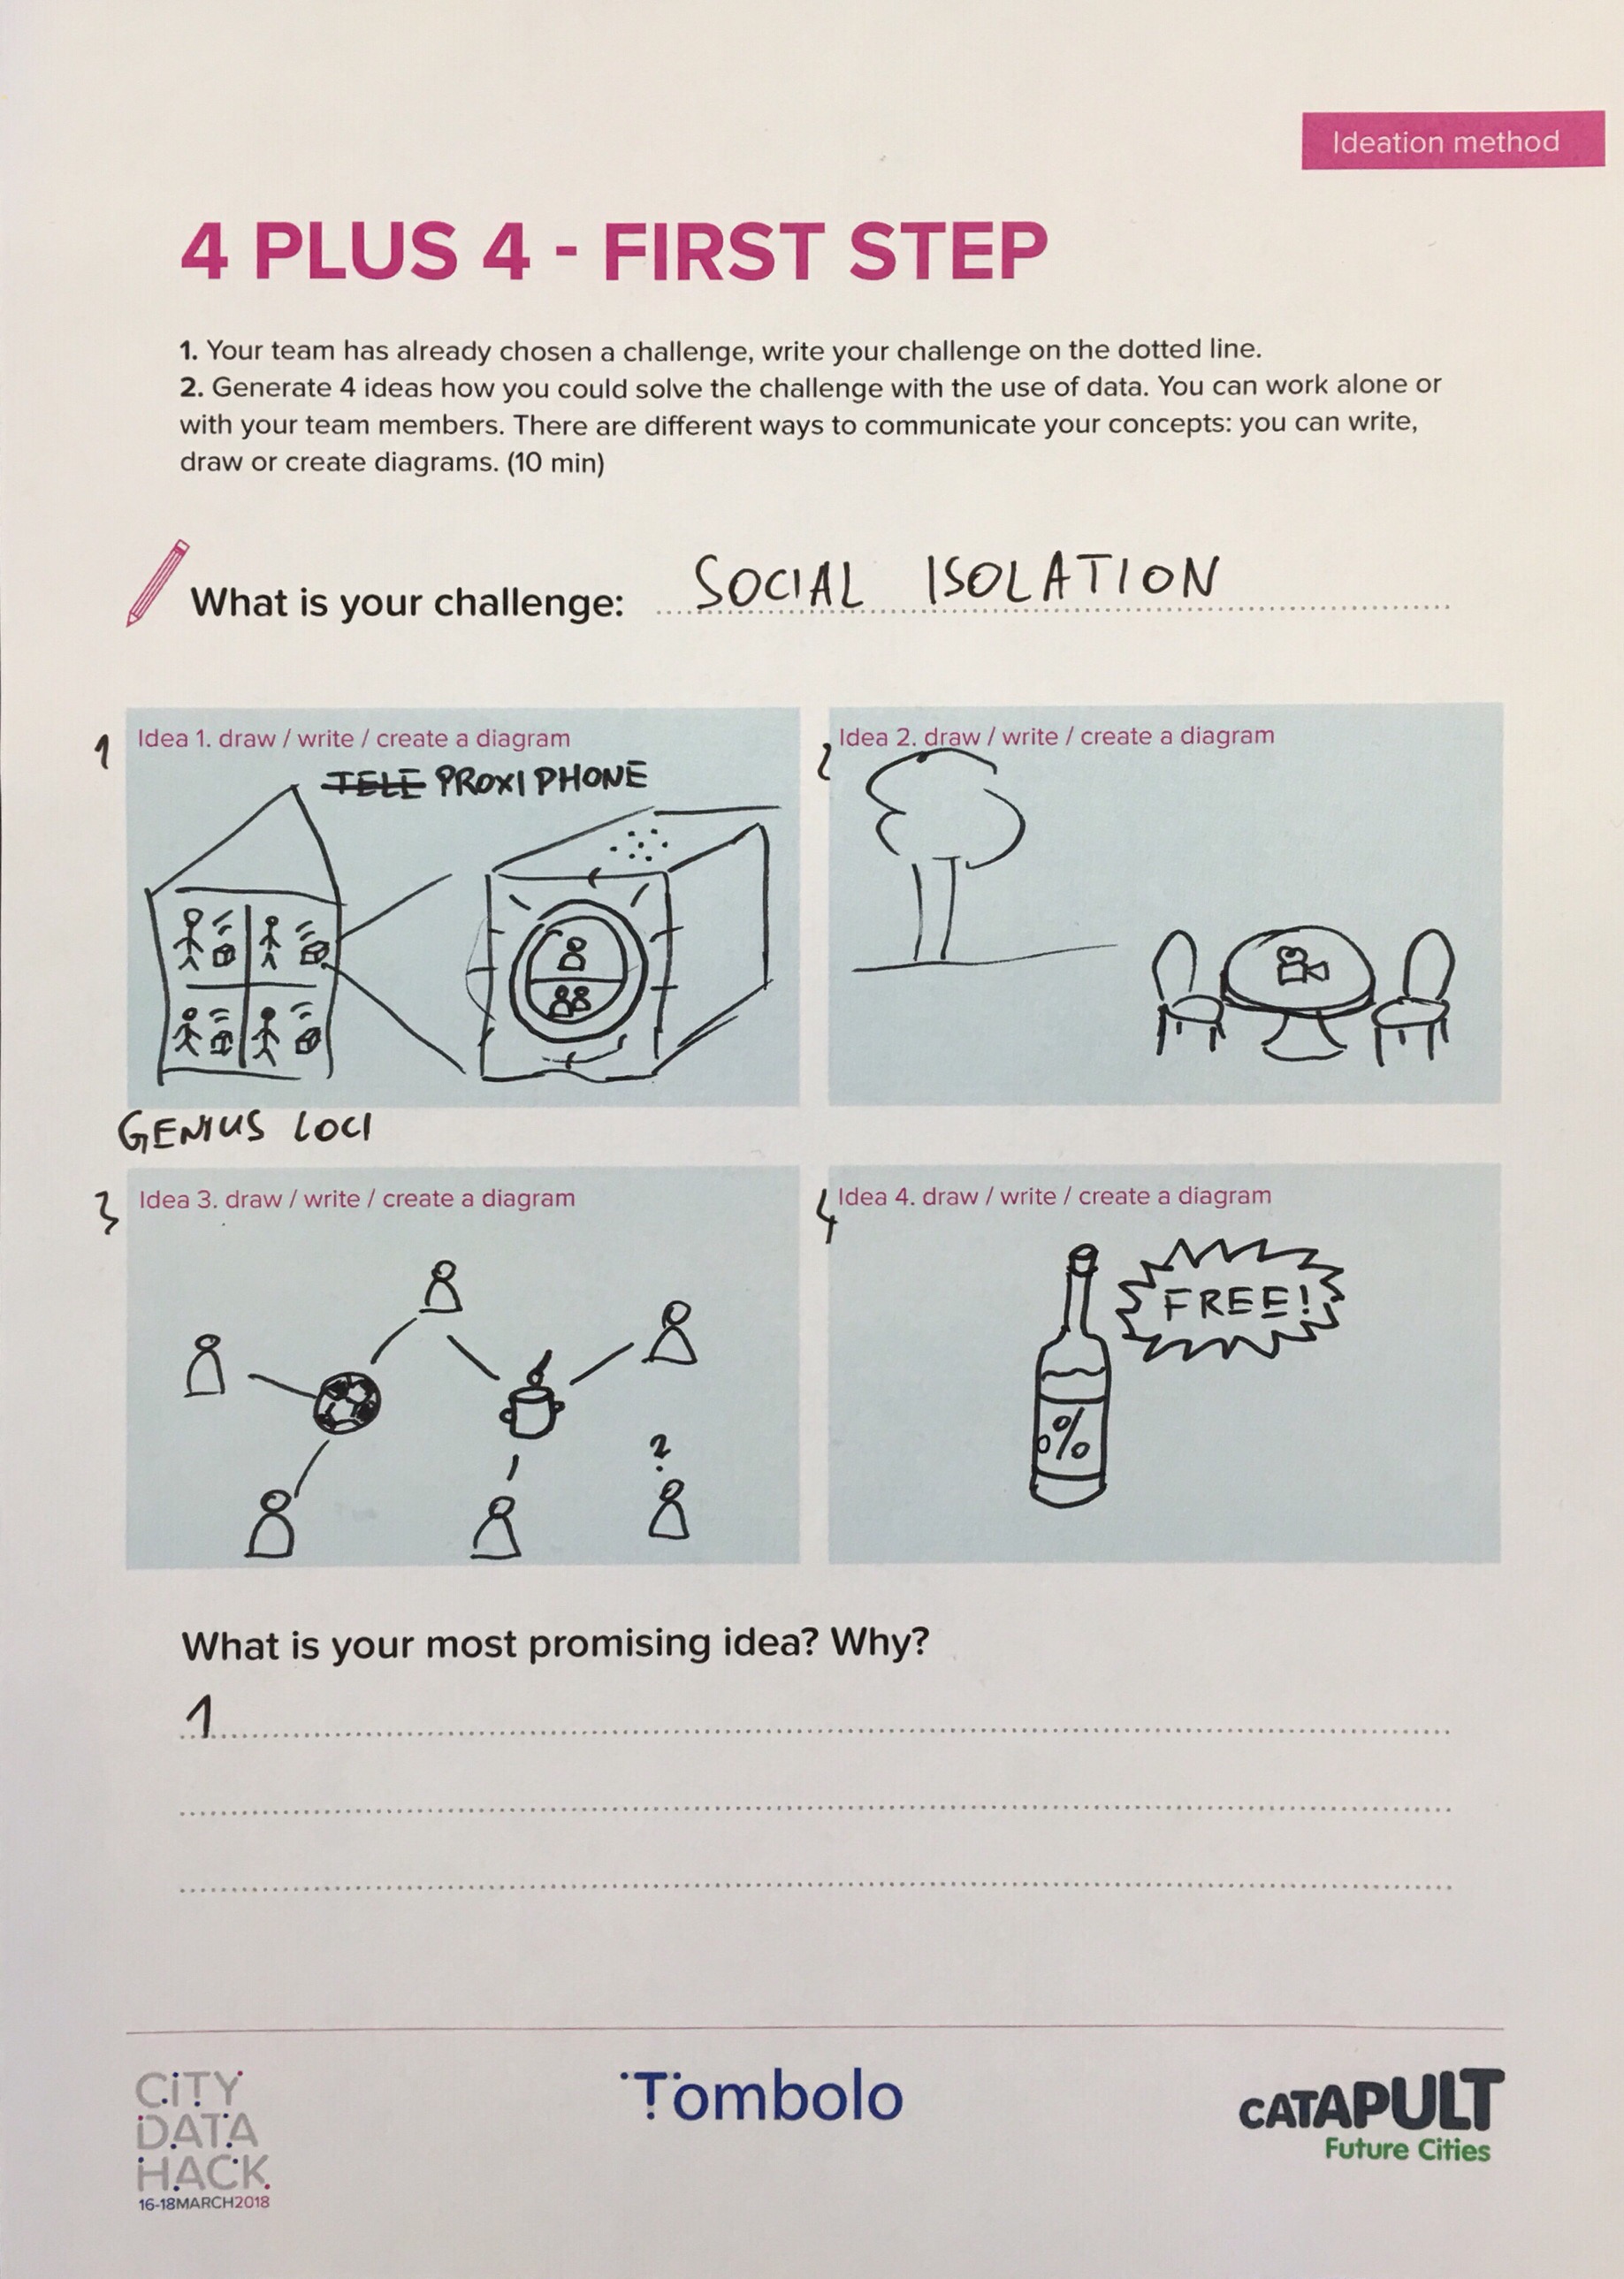 Ideation method
4 PLUS 4 - FIRST STEP
1. Your team has already chosen a challenge, write your challenge on the dotted line.
2. Generate 4 ideas how you could solve the challenge with the use of data. You can work alone or
with your team members. There are different ways to communicate your concepts: you can write,
draw or create diagrams. (10 min)
What is your challenge: SOCIAL ISOLATION
1 Idea 1. draw / write / create a diagram
TELE PROXIPHONE
2 Idea 2. draw / write / create a diagram
GENIUS LOCI
3 Idea 3. draw / write / create a diagram
?
4 Idea 4. draw / write / create a diagram
FREE!
%
What is your most promising idea? Why?
1
CiTY
DATA
HACK
16-18MARCH2018
Tombolo
CATAPULT
Future Cities